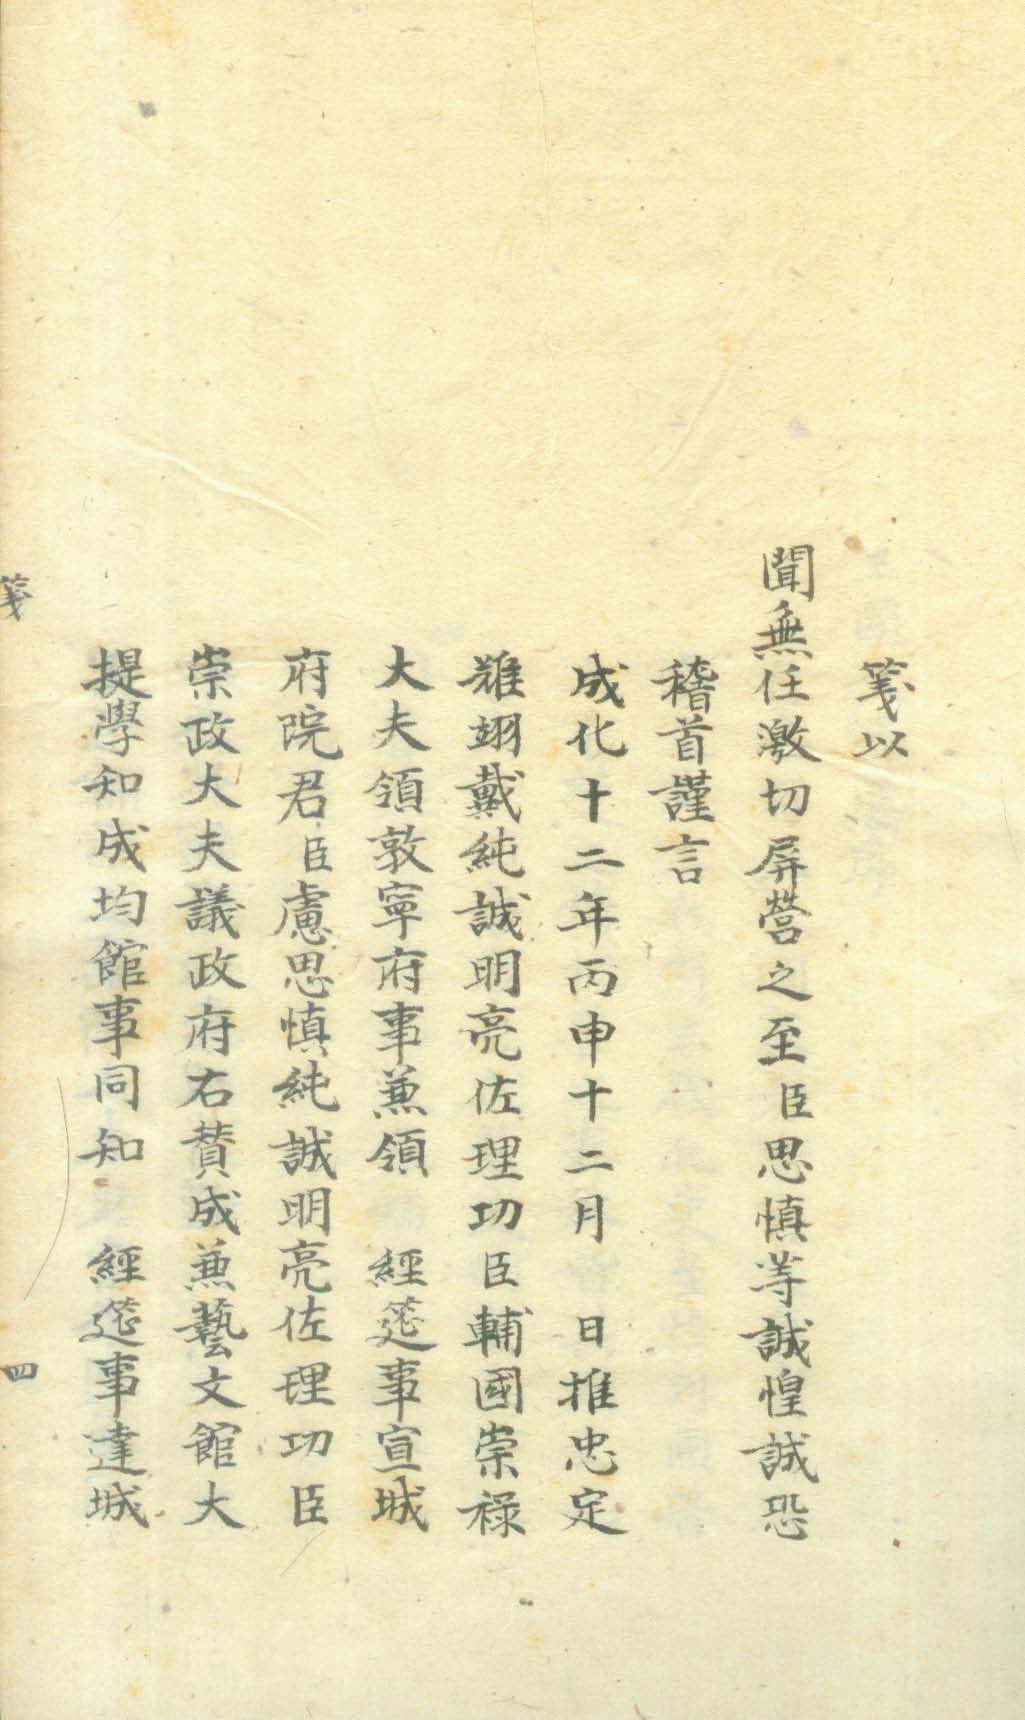 箋以
聞無任激切屏營之至臣思愼等誠惶誠恐
稽首謹言
成化十二年丙申十二月　日推忠定
難翊戴純誠明亮佐理功臣輔國崇祿
大夫領敦寧府事兼領　經筵事宣城
府院君臣盧思愼純誠明亮佐理功臣
崇政大夫議政府右贊成兼藝文館大
提學知成均館事同知　經筵事達城
箋　四